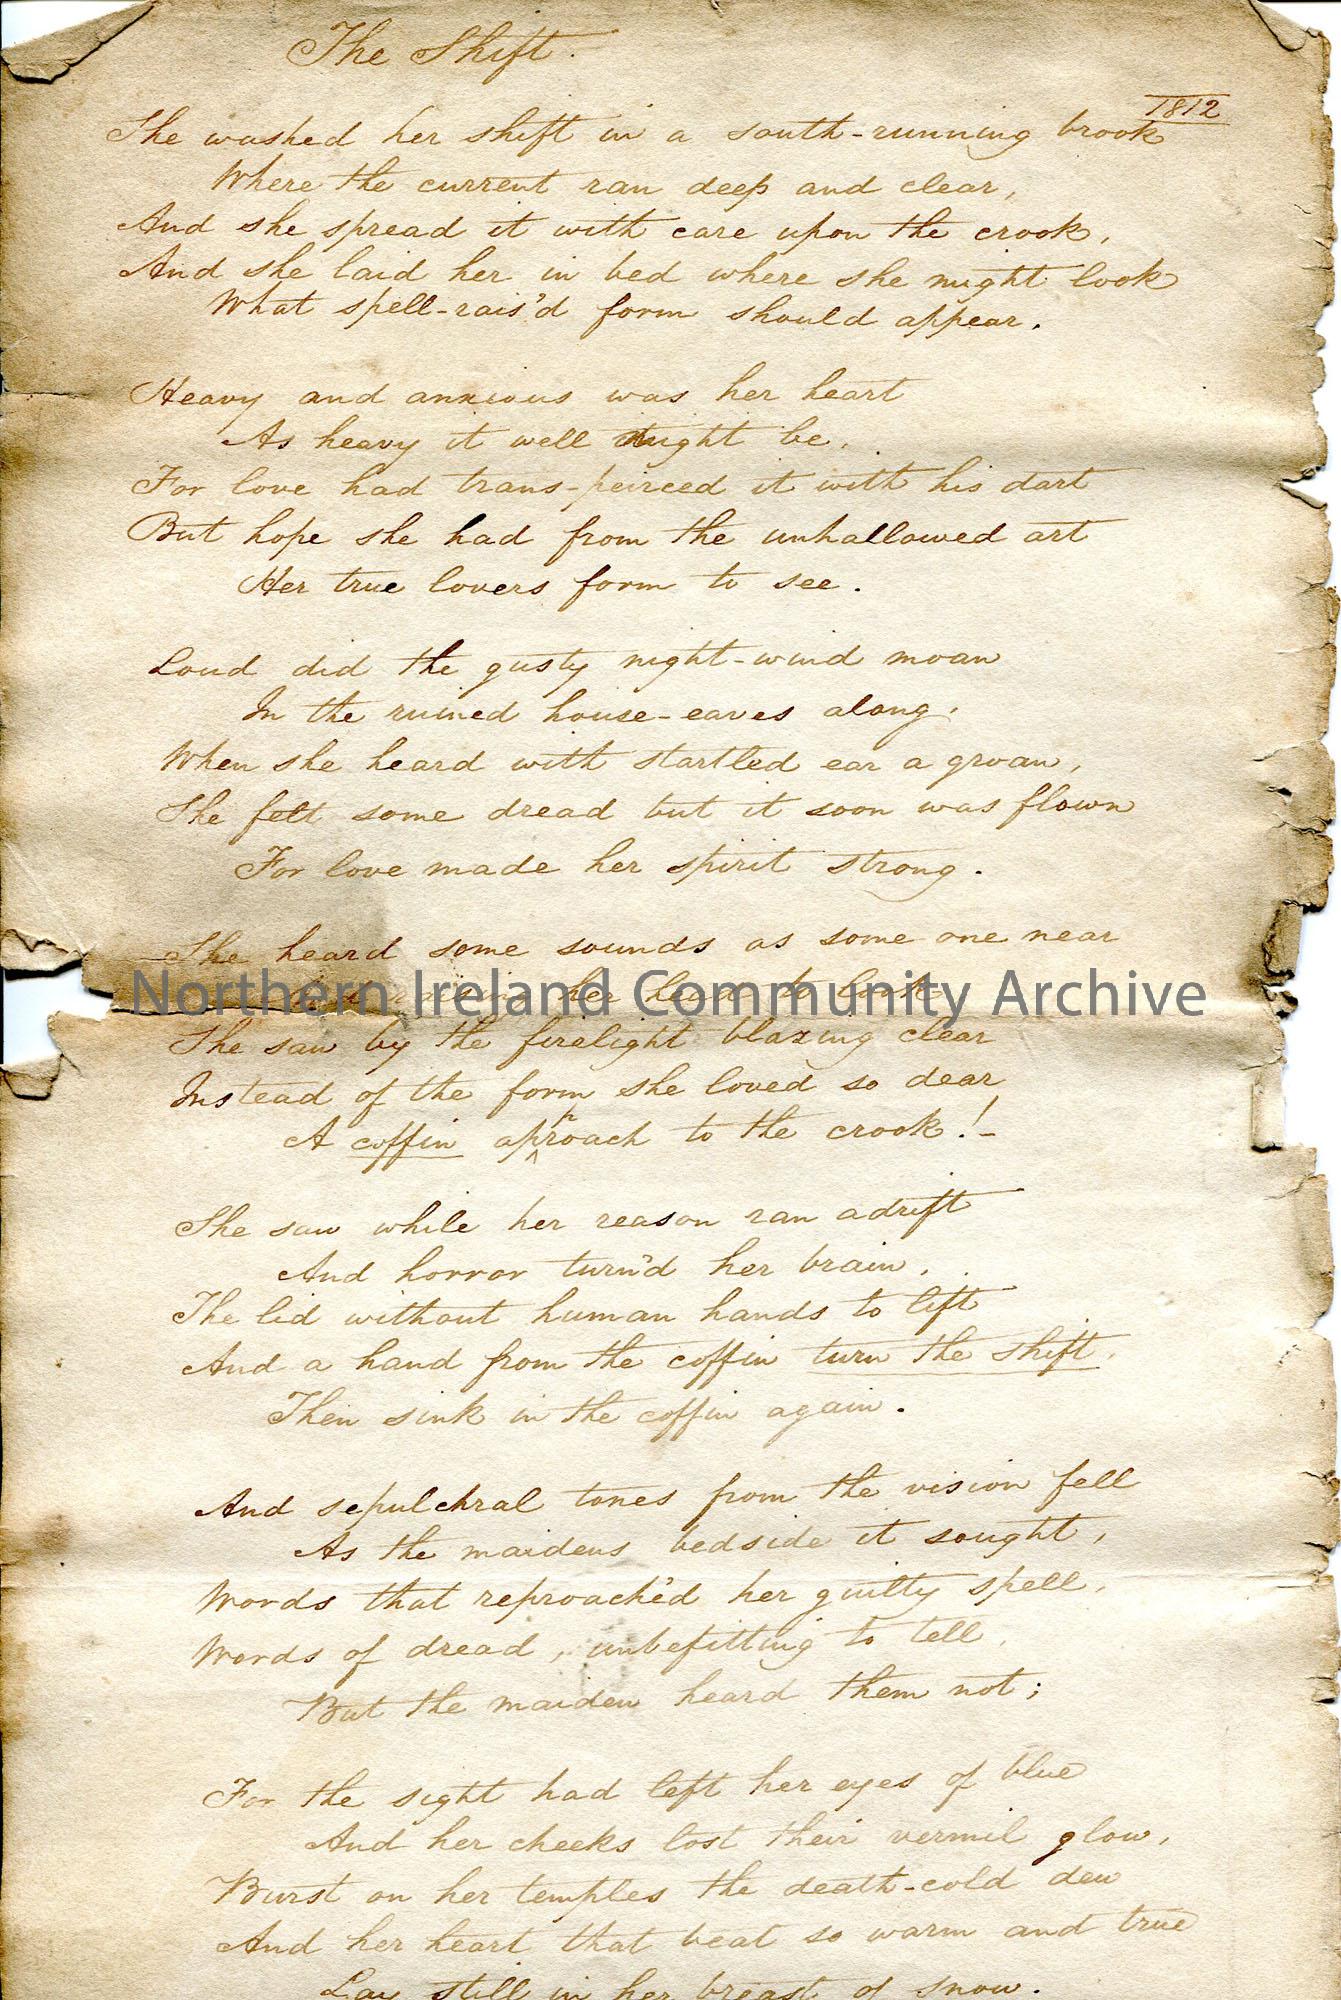 The Shift.
1812
She washed her shift in a south-running brook
Where the current ran deep and clear,
And she spread it with care upon the crook,
And she laid her in bed where she might look
What spell-rais'd form should appear.
Heavy and anxious was her heart
As heavy it well might be,
For love had trans-peirced it with his dart
But hope she had from the unhallowed art
Her true lovers form to see.
Loud did the gusty night-wind moan
In the ruined house-eaves along,
When she heard with startled ear a groan,
She felt some dread but it soon was flown
For love made her spirit strong.
She heard some sounds as some one near
raising her head to look
Northern Ireland Community Archive
She saw by the firelight blazing clear
Instead of the form she loved so dear
A coffin approach to the crook!-
She saw while her reason ran adrift
And horror turn'd her brain,
The lid without human hands to lift
And a hand from the coffin turn the shift,
Then sink in the coffin again.
And sepulchral tones from the vision fell
As the maidens bedside it sought,
Words that reproach'd her guilty spell,
Words of dread, unbefitting to tell,
But the maiden heard them not;
For the sight had left her eyes of blue
And her cheeks lost their vermil glow,
Burst on her temples the death-cold dew
And her heart that beat so warm and true
Lay still in her breast of snow.